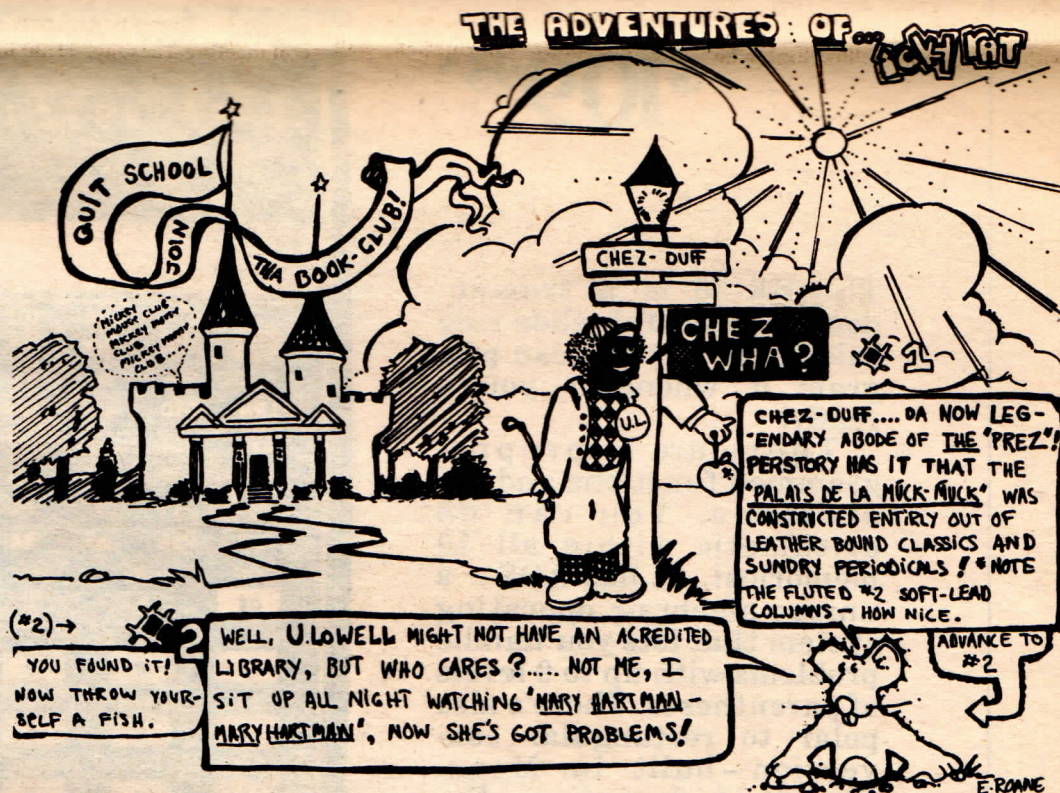 THE ADVENTURES OF... ICKY RAT
QUIT SCHOOL
JOIN
THA BOOK-CLUB!
MICKEY
MOUSE CLUB
MICKEY MOUSE
CLUB
MICKEY MOUSE
CLUB...
CHEZ-DUFF
CHEZ
WHA?
U.L.
#1
CHEZ-DUFF.... DA NOW LEG-
ENDARY ABODE OF THE "PREZ"!
PERSTORY HAS IT THAT THE
"PALAIS DE LA MUCK-MUCK" WAS
CONSTRICTED ENTIRLY OUT OF
LEATHER BOUND CLASSICS AND
SUNDRY PERIODICALS! *NOTE
THE FLUTED #2 SOFT-LEAD
COLUMNS - HOW NICE.
ADVANCE TO
#2
(#2)→
YOU FOUND IT!
NOW THROW YOUR-
SELF A FISH.
#2
WELL, U.LOWELL MIGHT NOT HAVE AN ACREDITED
LIBRARY, BUT WHO CARES?..... NOT ME, I
SIT UP ALL NIGHT WATCHING "MARY HARTMAN -
MARY HARTMAN", NOW SHE'S GOT PROBLEMS!
E. ROANE